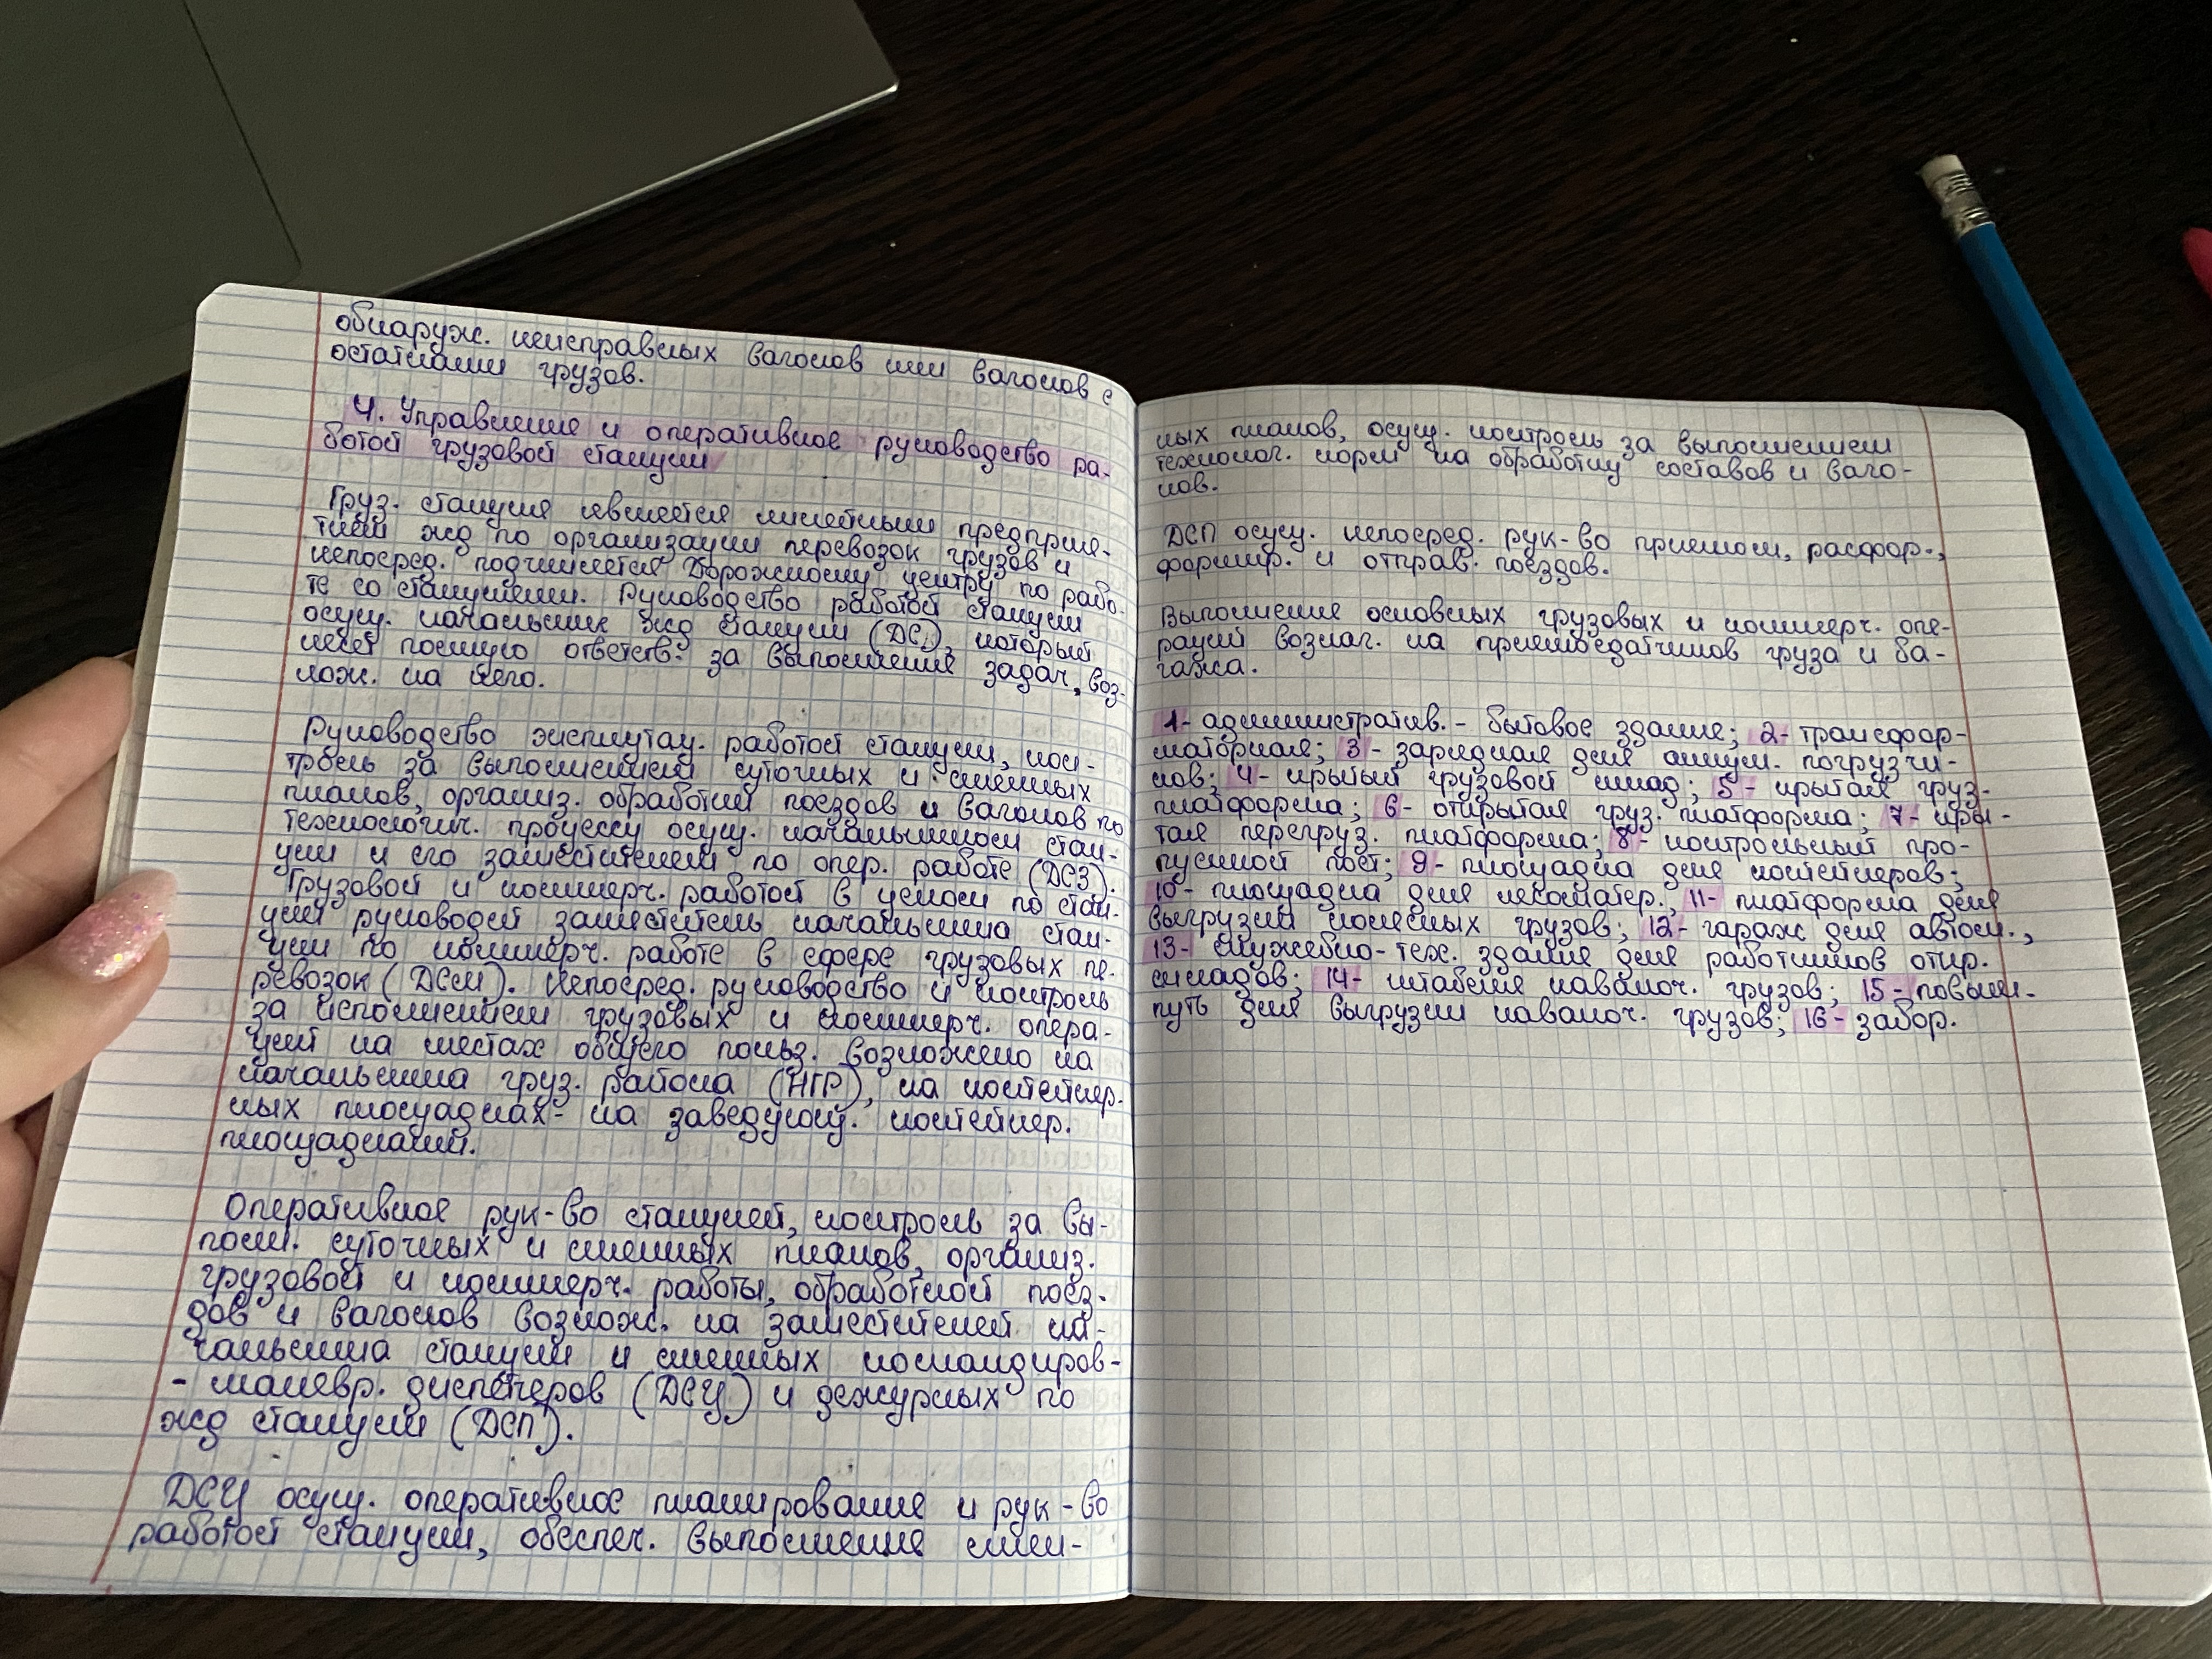 обнаруж. неисправных вагонов или вагонов с
остатками грузов.
4. Управление и оперативное руководство ра-
ботой грузовой станции
Груз. станция является линейным предприя-
тием жд по организации перевозок грузов и
непосред. подчиняется Дорожному центру по рабо-
те со станциями. Руководство работой станции
осущ. начальник жд станции (ДС), который
несёт полную ответств. за выполнение задач, воз-
лож. на него.
Руководство эксплутац. работой станции, кон-
троль за выполнением суточных и сменных
планов, организ. обработкой поездов и вагонов по
технологич. процессу осущ. начальником стан-
ции и его заместителем по опер. работе (ДСЗ).
Грузовой и коммерч. работой в целом по стан-
ции руководит заместитель начальника стан-
ции по коммерч. работе в сфере грузовых пе-
ревозок (ДСМ). Непосред. руководство и контроль
за исполнением грузовых и коммерч. опера-
ций на местах общего польз. возложено на
начальника груз. района (НГР), на контейнер-
ных площадках - на заведующ. контейнер.
площадками.
Оперативное рук-во станцией, контроль за вы-
полн. суточных и сменных планов, организ.
грузовой и коммерч. работы, обработкой поез-
дов и вагонов возлож. на заместителей на-
чальника станции и сменных командиров-
- маневр. диспетчеров (ДСЦ) и дежурных по
жд станции (ДСП).
ДСЦ осущ. оперативное планирование и рук-во
работой станции, обеспеч. выполнение смен-
ных планов, осущ. контроль за выполнением
технолог. норм на обработку составов и ваго-
нов.
ДСП осущ. непосред. рук-во приемом, расфор.,
формир. и отправ. поездов.
Выполнение основных грузовых и коммерч. опе-
раций возлаг. на приемосдатчиков груза и ба-
гажа.
1- административ. - бытовое здание; 2- трансфор-
маторная; 3- зарядная для аккум. погрузчи-
ков; 4- крытый грузовой склад; 5- крытая груз.
платформа; 6- открытая груз. платформа; 7- кры-
тая перегруз. платформа; 8- контрольный про-
пускной пост; 9- площадка для контейнеров;
10- площадка для лесоматер., 11- платформа для
выгрузки колесных грузов; 12- гараж для автом.,
13- служебно-тех. здания для работников откр.
складов; 14- штабеля навалоч. грузов; 15- повыш.
путь для выгрузки навалоч. грузов; 16- забор.